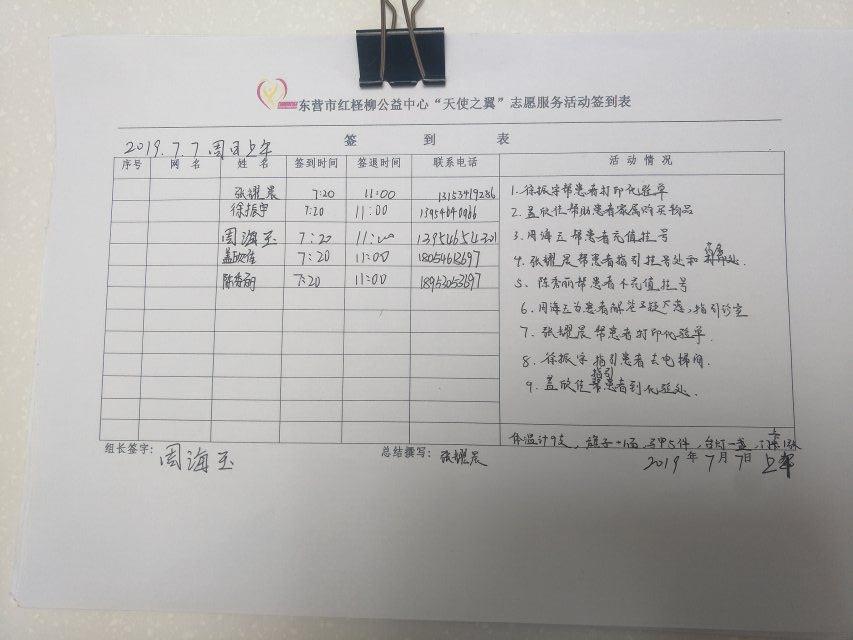 东营市红柽柳公益中心“天使之翼”志愿服务活动签到表
签 到 表
2019.7.7.周日上午
序号 网名 姓名 签到时间 签退时间 联系电话 活动情况
张耀晨 7:20 11:00 13153419286
徐振宇 7:20 11:00
周海玉 7:20 11:00 13954654321
盖欣佳 7:20 11:00
陈秀丽 7:20 11:00 18953053697
1.徐振宇帮患者打印化验单
2.盖欣佳帮助患者家属购买物品
3.周海玉帮患者充值挂号
4.张耀晨帮患者指引挂号处和
5.陈秀丽帮患者 充值挂号
6.周海玉为患者解答 ,指引诊室
7.张耀晨帮患者打印化验单.
8.徐振宇指引患者去电梯间.
9.盖欣佳指引患者到化验处.
体温计9支, 旗子一面, 马甲5件, 台灯一盏,
组长签字: 周海玉 总结撰写: 张耀晨 2019年7月7日 上午